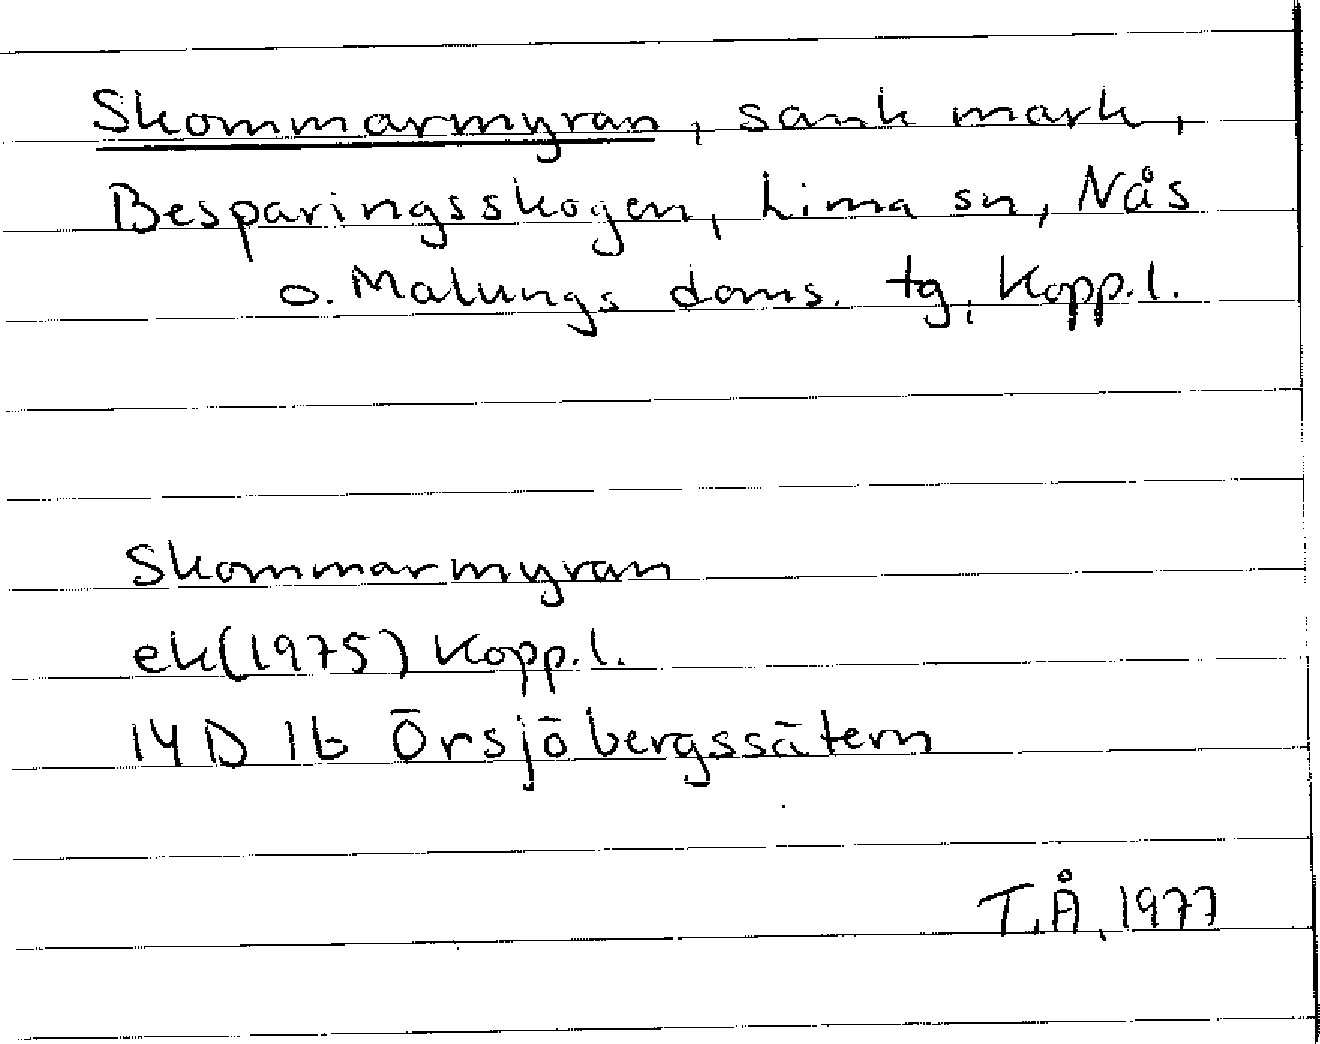 Skommarmyran, sank mark,
Besparingsskogen, Lima sn, Nås
o. Malungs doms. tg, Kopp.l.
Skommarmyran
ek(1975) Kopp.l.
14D 1b Örsjöbergssätern
T.Å, 1977